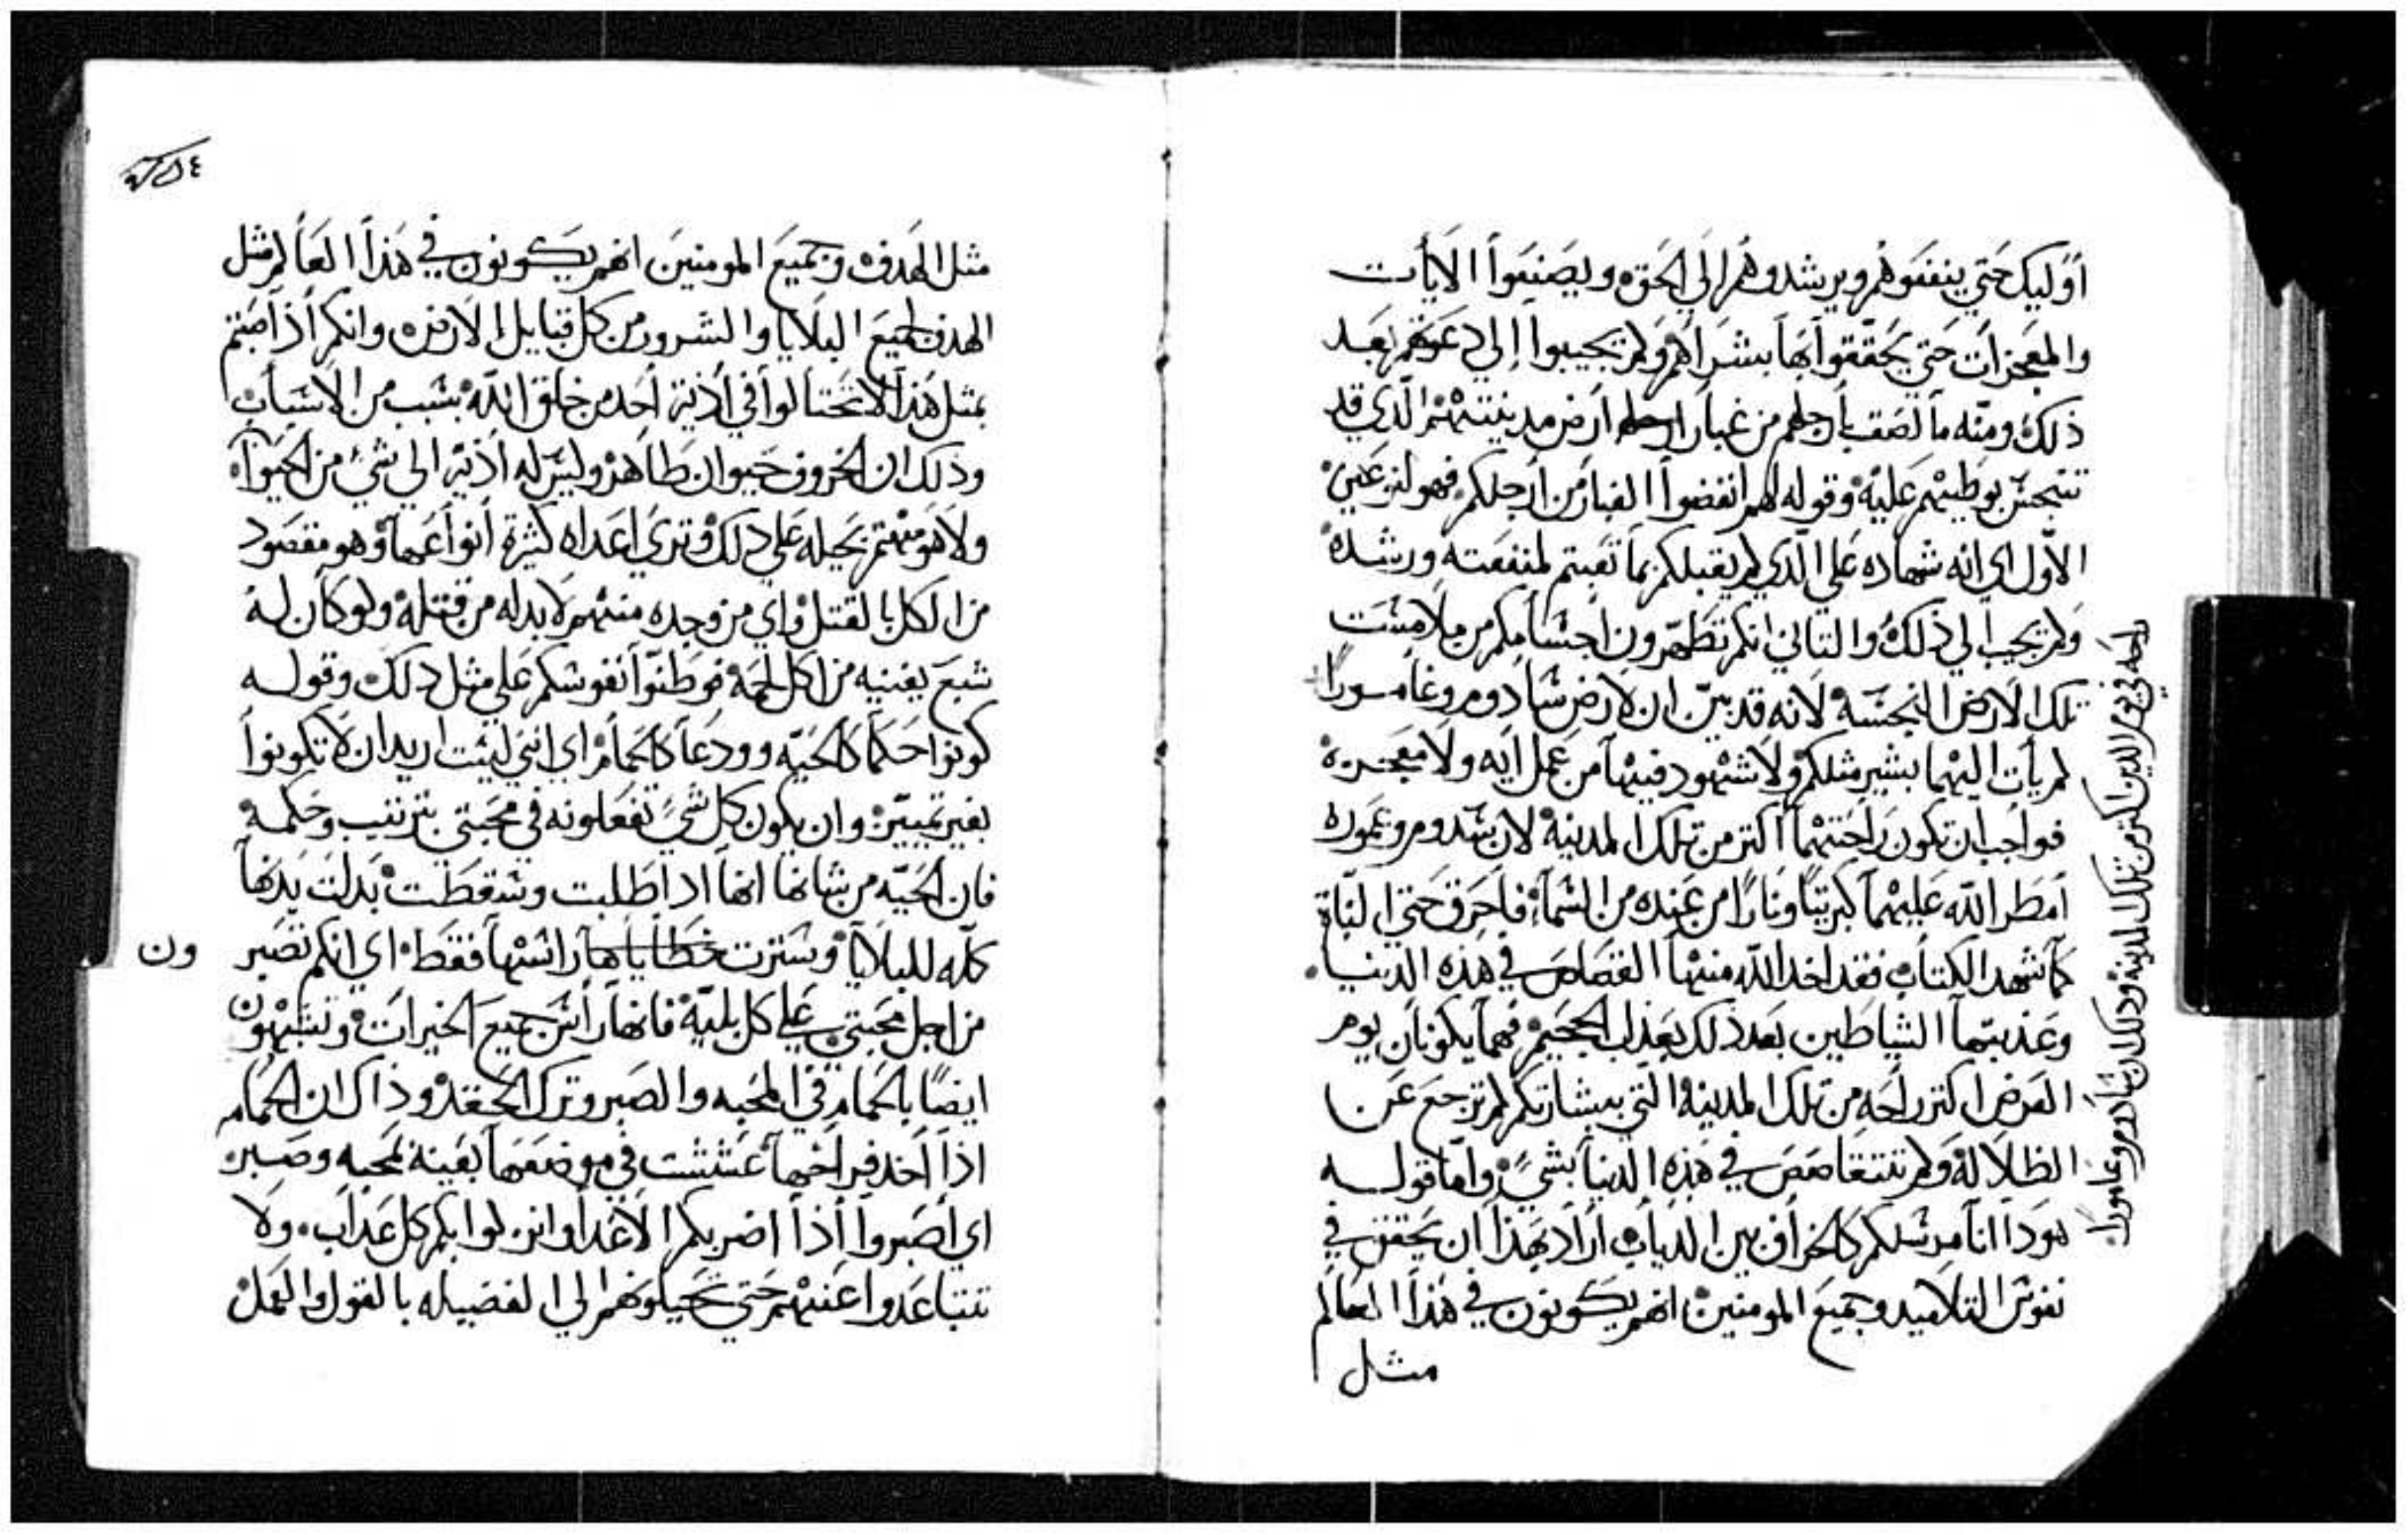 اوليك حتي ينفعوهم ويرشدوهم الي الحق ويصنعوا الايات
والمعجزات حتي يحققوا بها بشراهم ولم يجيبوا الي دعوتهم بعد
ذلك ومنه ما لصق بارجلهم من غبار ارض مدينتهم الذي قد
تنجس بوطيهم عليه وقوله لهم انفضوا الغبار من ارجلكم فهو
الاول اي انه شهاده علي الذي لم يقبلكم بما تعبتم لمنفعته ورشده
ولم يجب الي ذلك والتاني انكم تطهرون اجسامكم من ملامست
تلك الارض النجسه لانه قد بين ان لارض سادوم وغامورا
لم يات اليهما بشير مثلكم ولا شهود فيهما من عمل ايه ولا معجزه
فواجب ان تكون راحتهما اكتر من تلك المدينه لان سدوم وعموره
امطر الله عليهما كبريتا ونارا من عنده من السماء فاحرق حتي النباة
كما شهد الكتاب فقد اخد الله منهما القصاص في هذه الدنيا
وعذبتهما الشياطين بعد ذلك بعذاب الجحيم فهما يكونان يوم
العرض اكتر راحه من تلك المدينه التي ببشارتكم لم ترجع عن
الظلاله ولم تتقاصص في هذه الدنيا بشي واما قوله
هوذا انا مرسلكم كالخراف بين الدياب اراد بهذا ان يحقق في
نفوس التلاميد وجميع المومنين انهم يكونون في هذا العالم
مثل
راحه في يوم الدين اكتر من تلك المدينه ودلك لان سادوم وغامورا
٤٥٤
مثل الهدف وجميع المومنين انهم يكونون في هذا العالم مثل
الهدف لجميع البلايا والشرور من كل قبايل الارض وانكم اذا اصبتم
بمثل هذا لا تحتالوا في اذية احد من خلق الله بسبب من الاسباب
وذلك ان الخروف حيوان طاهر وليس له اذية الي شي من الحيوان
ولا هو مهتم بحيله علي ذلك وتري اعداه كثيرة انواعها وهو مقصود
من الكل بالقتل واي من وجده منهم لا بد له من قتله ولو كان له
شبع يغنيه من اكل لحمه فوطنوا نفوسكم علي مثل ذلك وقوله
كونوا حكما كالحيه وودعا كالحمام اي انني لست اريد ان لا تكونوا
بغير تمييز وان يكون كل شي تفعلونه في محبتي بترتيب وحكمه
فان الحيه من شانها انها ادا طلبت وسقطت بدلت بدنها
كله للبلايا وسترت خطاياها راسها فقط اي انكم تصبر ون
من اجل محبتي علي كل بلية فانها راس جميع الخيرات وتشبهون
ايضا بالحمام في المحبه والصبر وترك الحقد وذاك ان الحمام
اذا اخد فراخها عششت في موضعها بعينه لمحبه وصبر
اي اصبروا اذا اضر بكم الاعدا وانزلوا بكم كل عداب ولا
تتباعدوا عنهم حتي تحيلوهم الي الفضيله بالقول والعمل